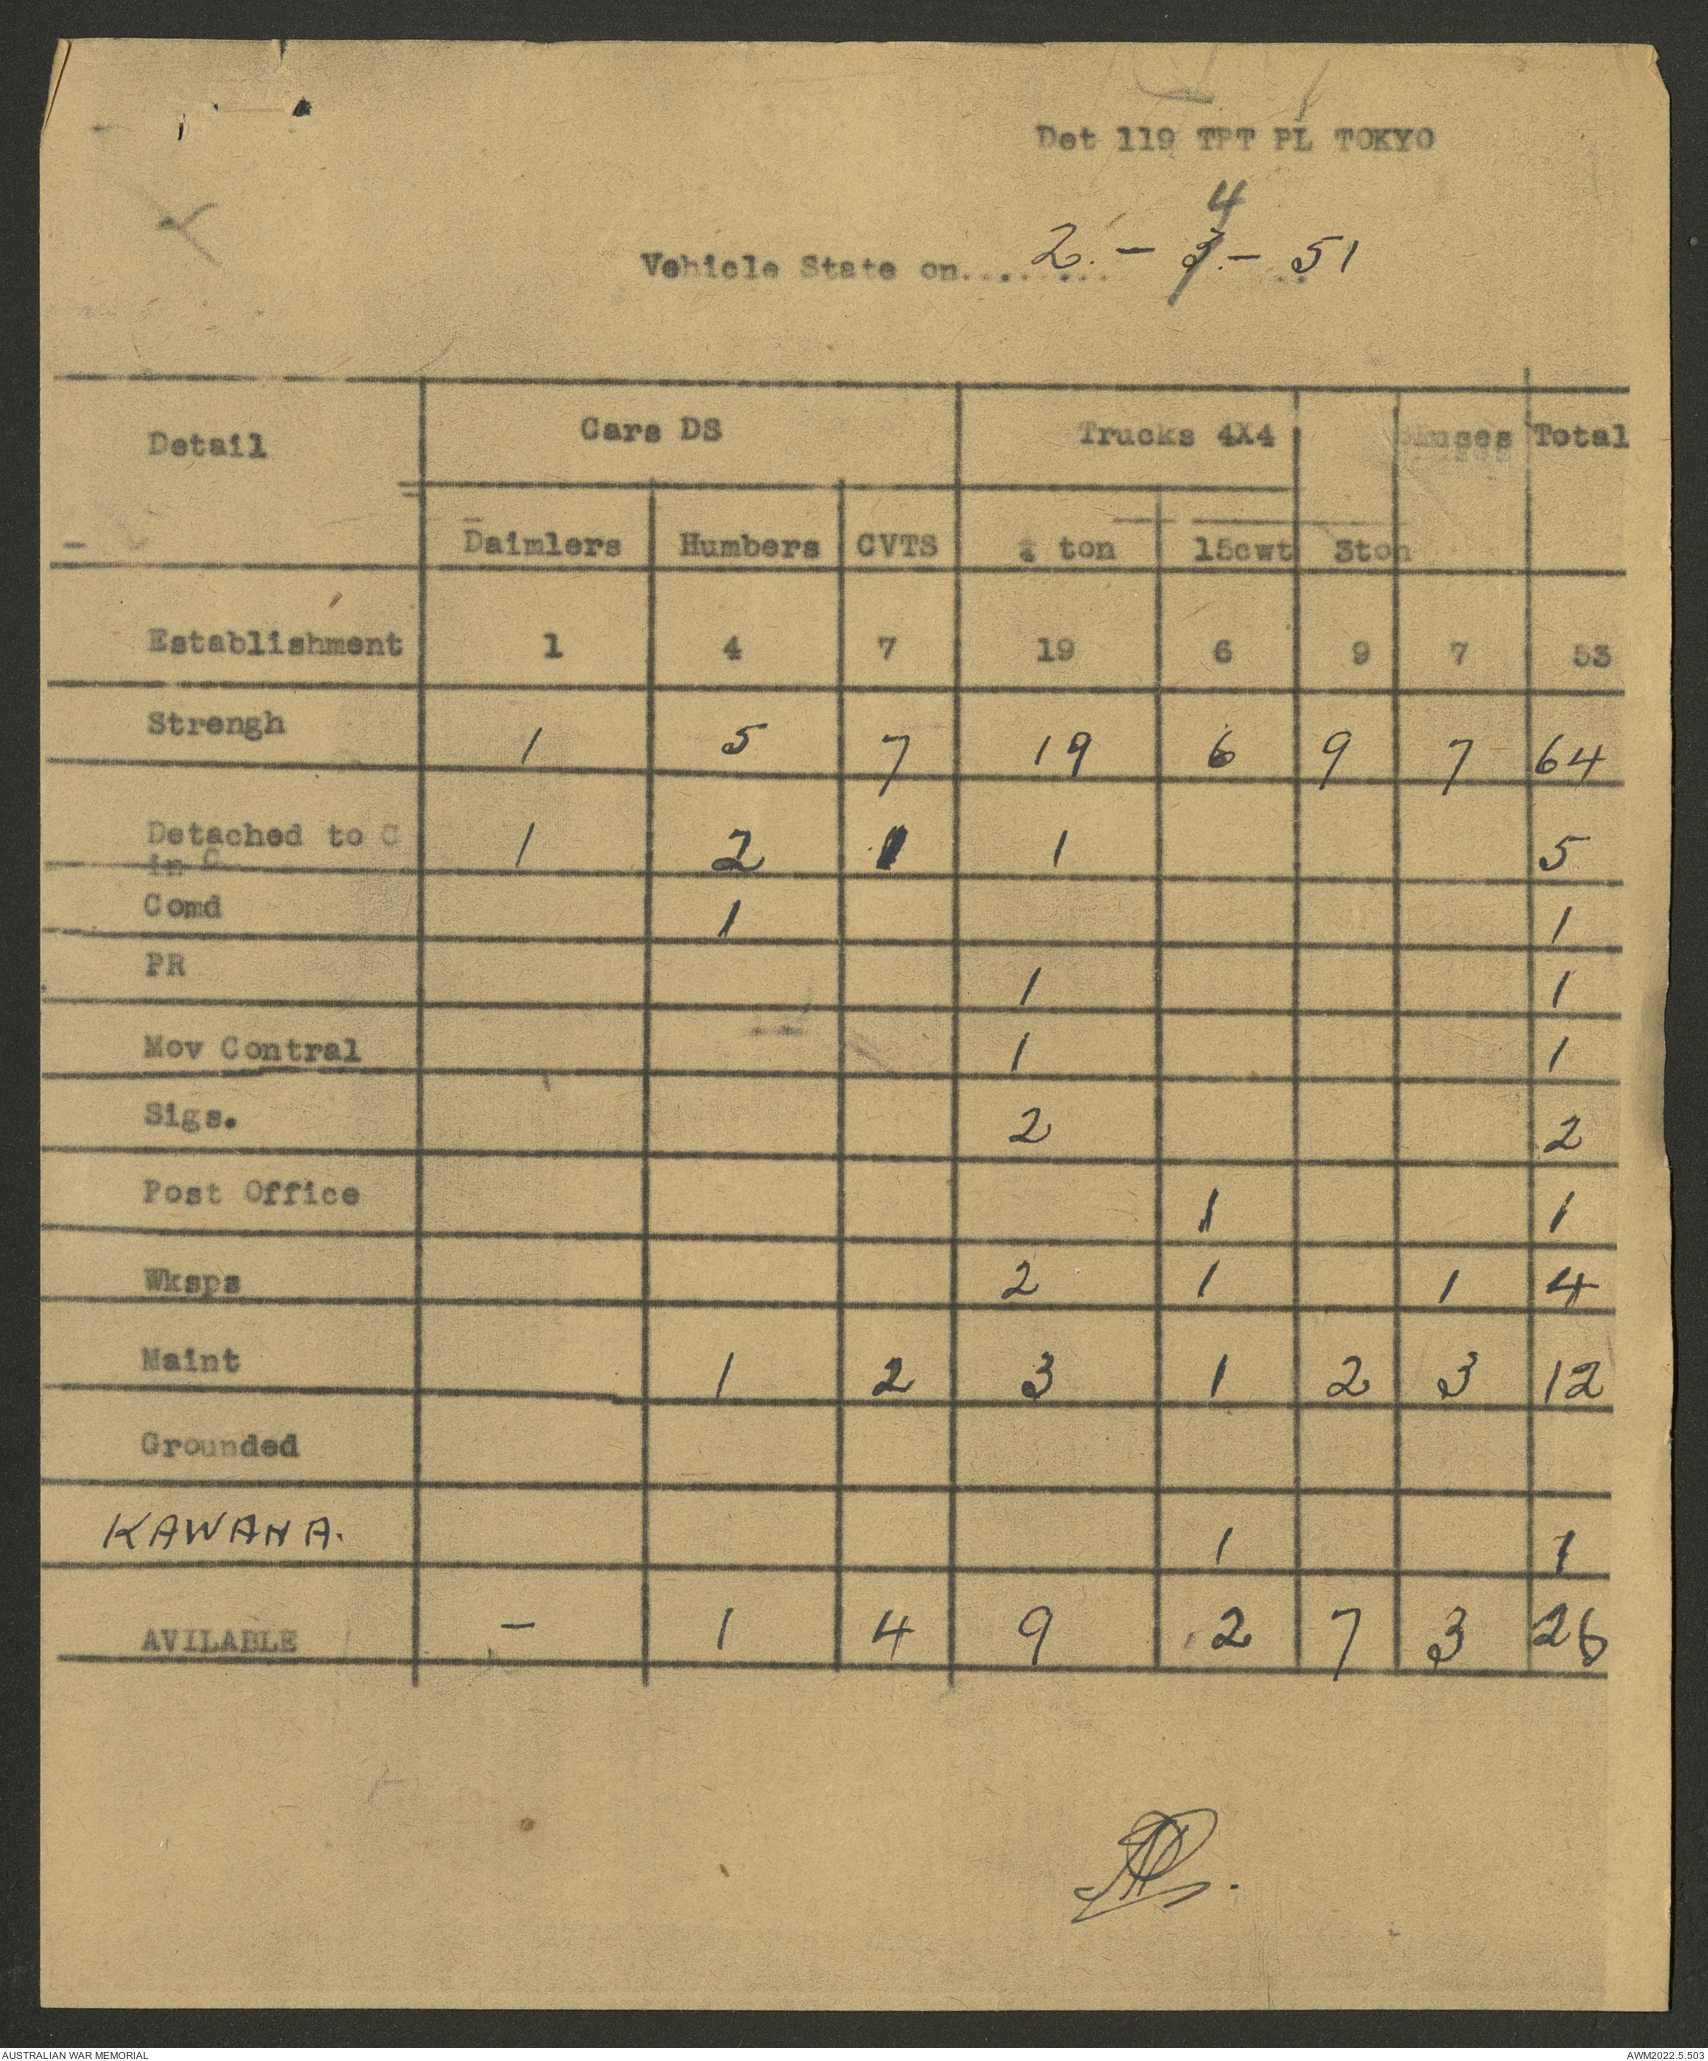 Det 119 TPT PL TOKYO
4
Vehicle State on........ 2 - 3 - 51
Detail Cars DS Trucks 4X4 Buses Total
Daimlers Humbers CVTS ¼ ton 15cwt 3ton
Establishment 1 4 7 19 6 9 7 53
Strengh 1 5 7 19 6 9 7 64
Detached to C 1 2 1 1 5
in C
Comd 1 1
PR 1 1
Mov Contral 1 1
Sigs. 2 2
Post Office 1 1
Wksps 2 1 1 4
Maint 1 2 3 1 2 3 12
Grounded
KAWANA. 1 1
AVILABLE - 1 4 9 2 7 3 26
AUSTRALIAN WAR MEMORIAL AWM2022.5.503